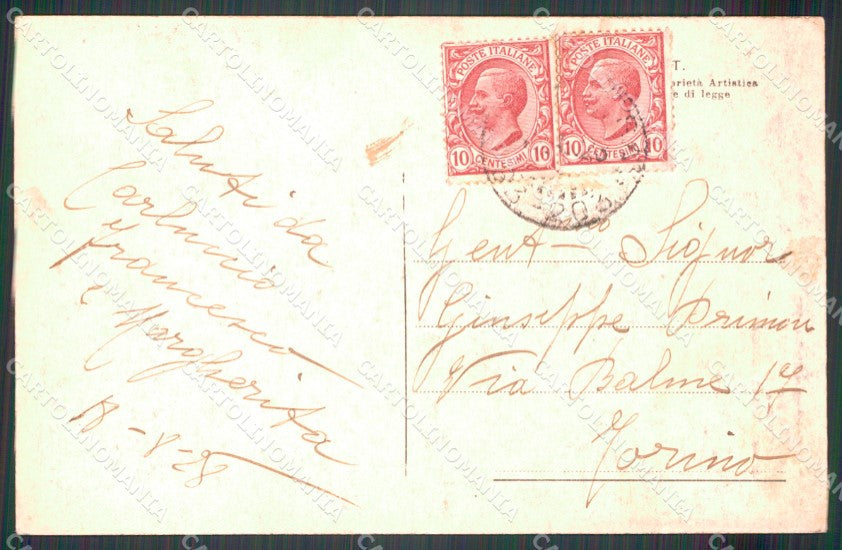 Saluti da
Carluccio
Francesco
e Margherita
18-8-28
POSTE ITALIANE
10 CENTESIMI 10
POSTE ITALIANE
10 CENTESIMI 10
T.
prietà Artistica
e di legge
Gent Signor
Giuseppe
Via Balme
Torino
CARTOLINOMANIA